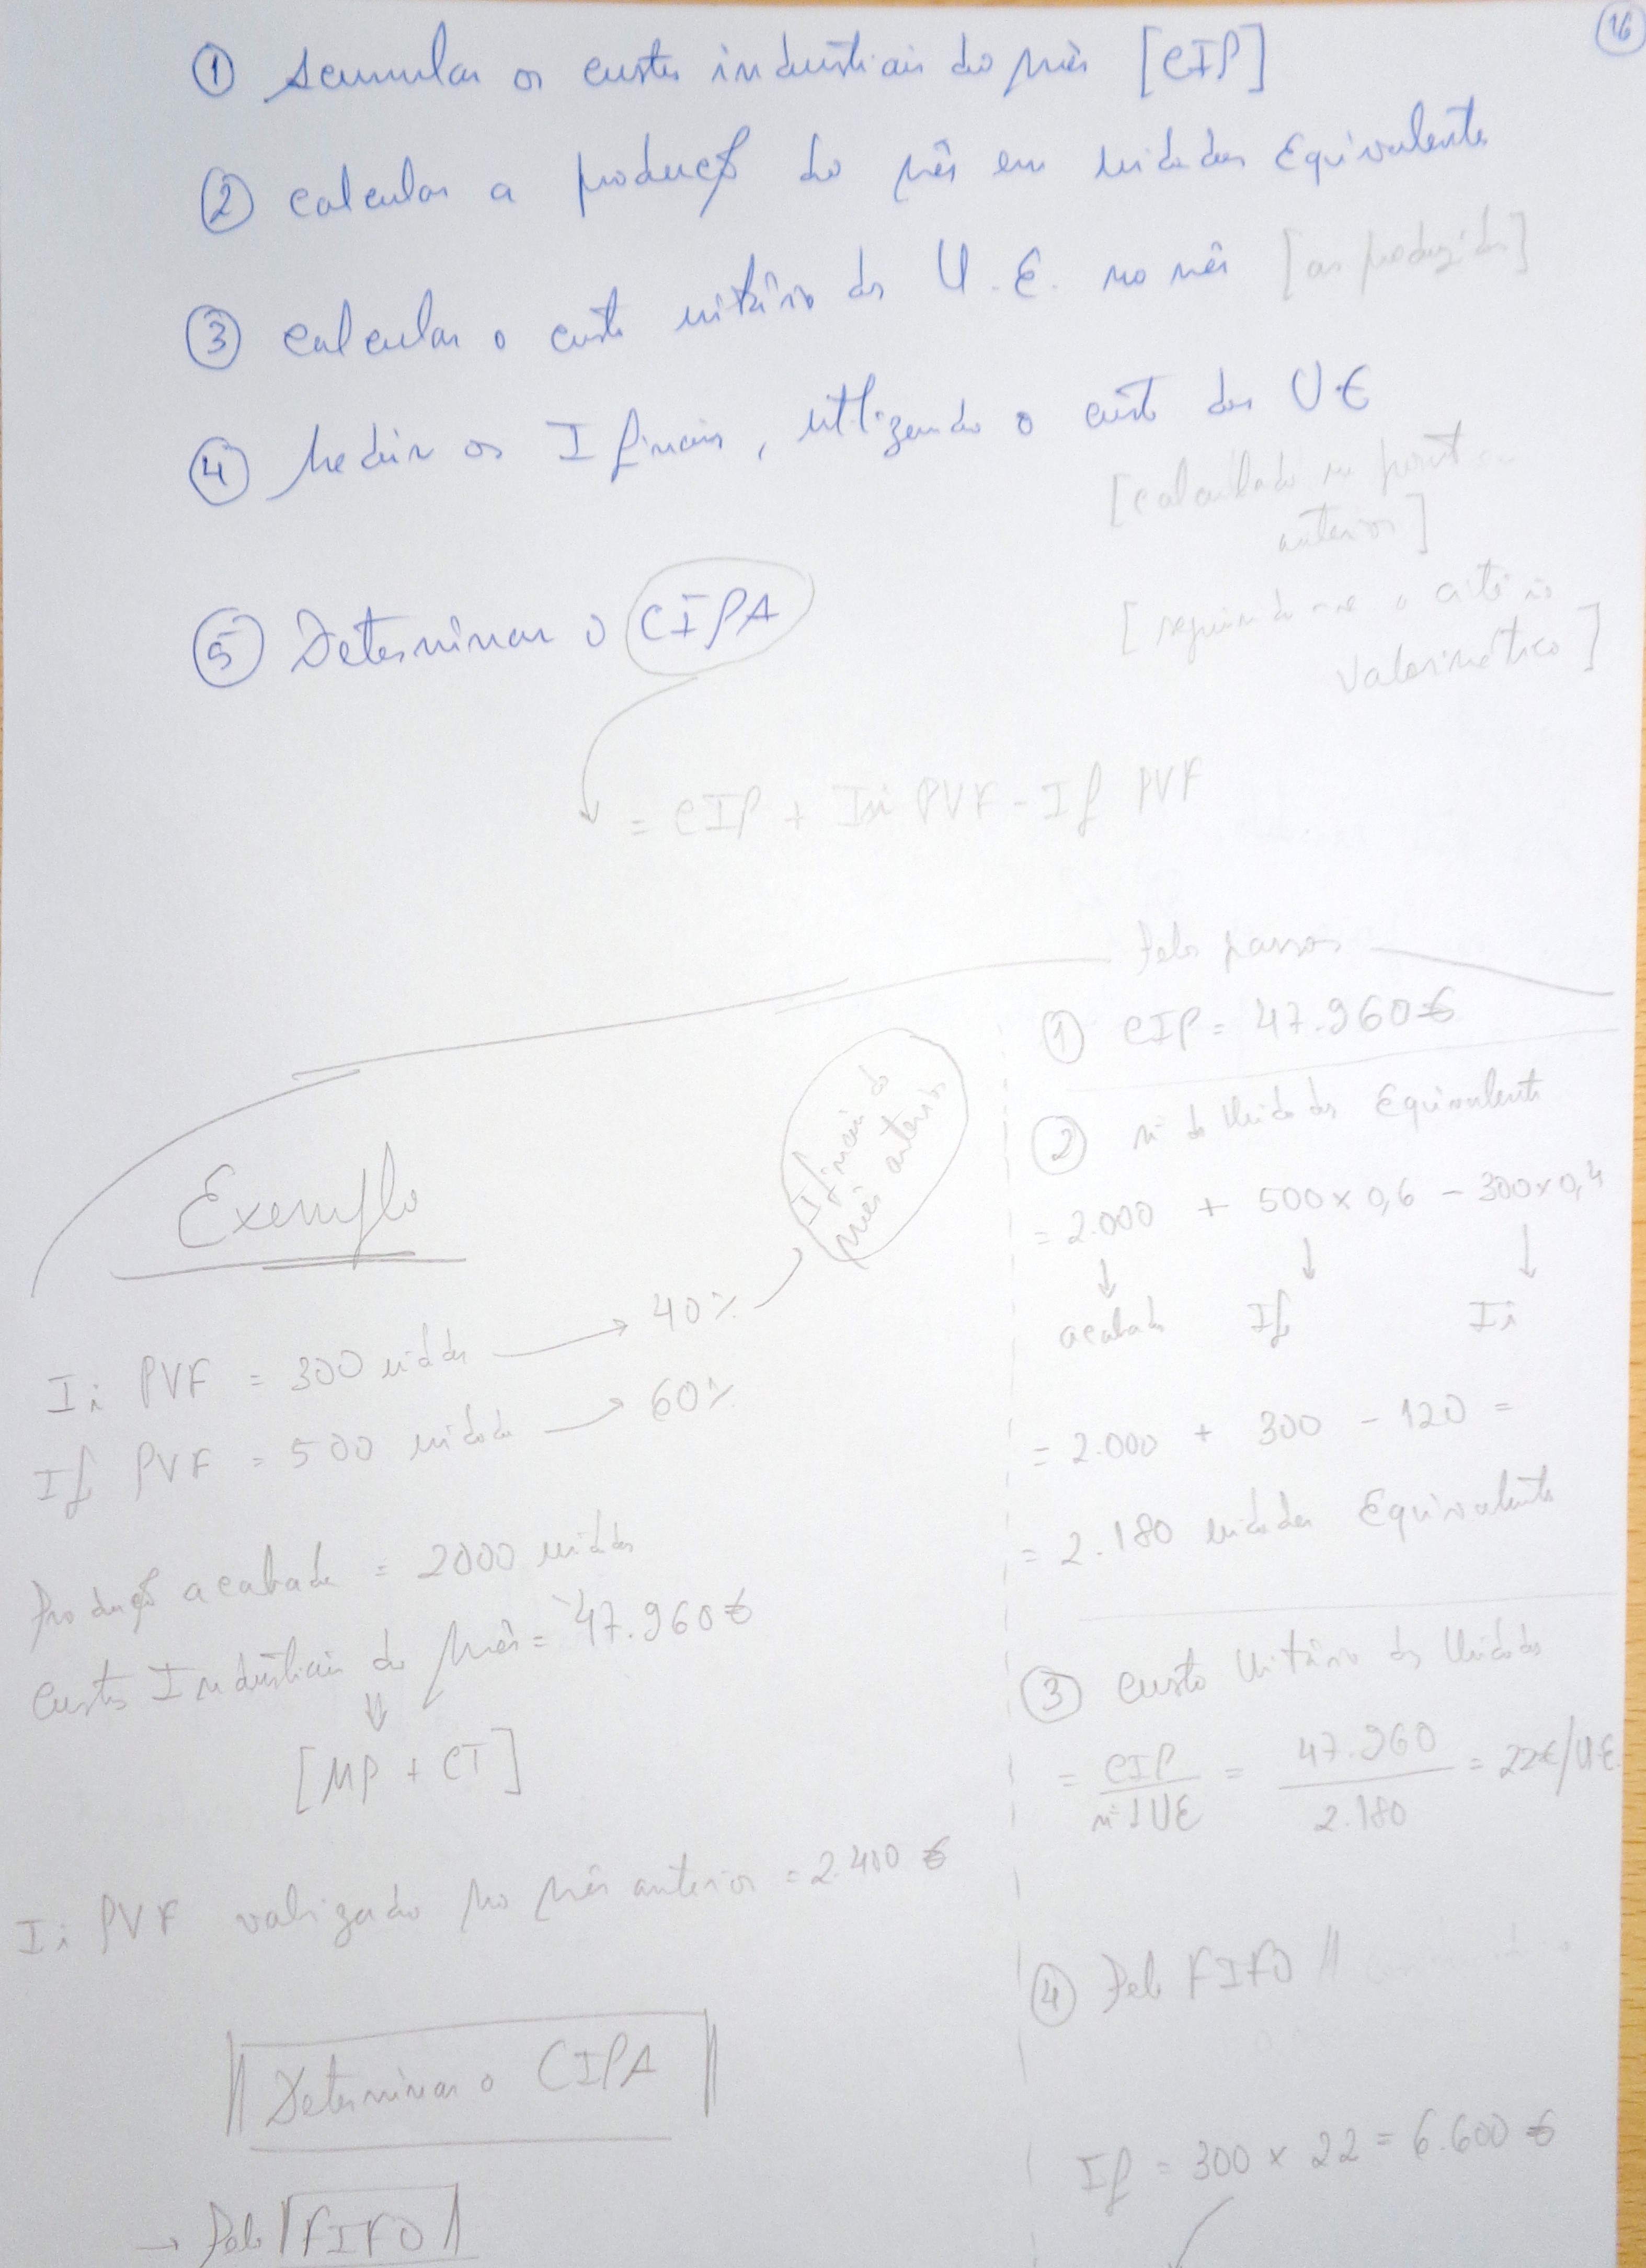 16
① Acumular os custos industriais do mês [CIP]
② Calcular a produção do mês em unidades Equivalentes
③ Calcular o custo unitário das U.E. no mês [as produzidas]
④ Medir os I finais, utilizando o custo das UE
[calculado no ponto
anterior]
[seguindo-se o critério
valorimétrico]
⑤ Determinar o CIPA
= CIP + Ii PVF - If PVF
Exemplo
I finais do
mês anterior
Ii PVF = 300 unidades → 40%
If PVF = 500 unidades → 60%
Produção acabada = 2000 unidades
Custos Industriais do Mês = 47.960€
[MP + CT]
Ii PVF valorizado no mês anterior = 2.400 €
Determinar o CIPA
→ Pelo FIFO
Pelos passos
① CIP = 47.960€
② nº de Unidades Equivalentes
= 2.000 + 500 x 0,6 - 300 x 0,4
acabada If Ii
= 2.000 + 300 - 120 =
= 2.180 unidades Equivalentes
③ Custo Unitário das Unidades
= CIP / nº UE = 47.960 / 2.180 = 22€/UE
④ Pelo FIFO
If = 300 x 22 = 6.600 €